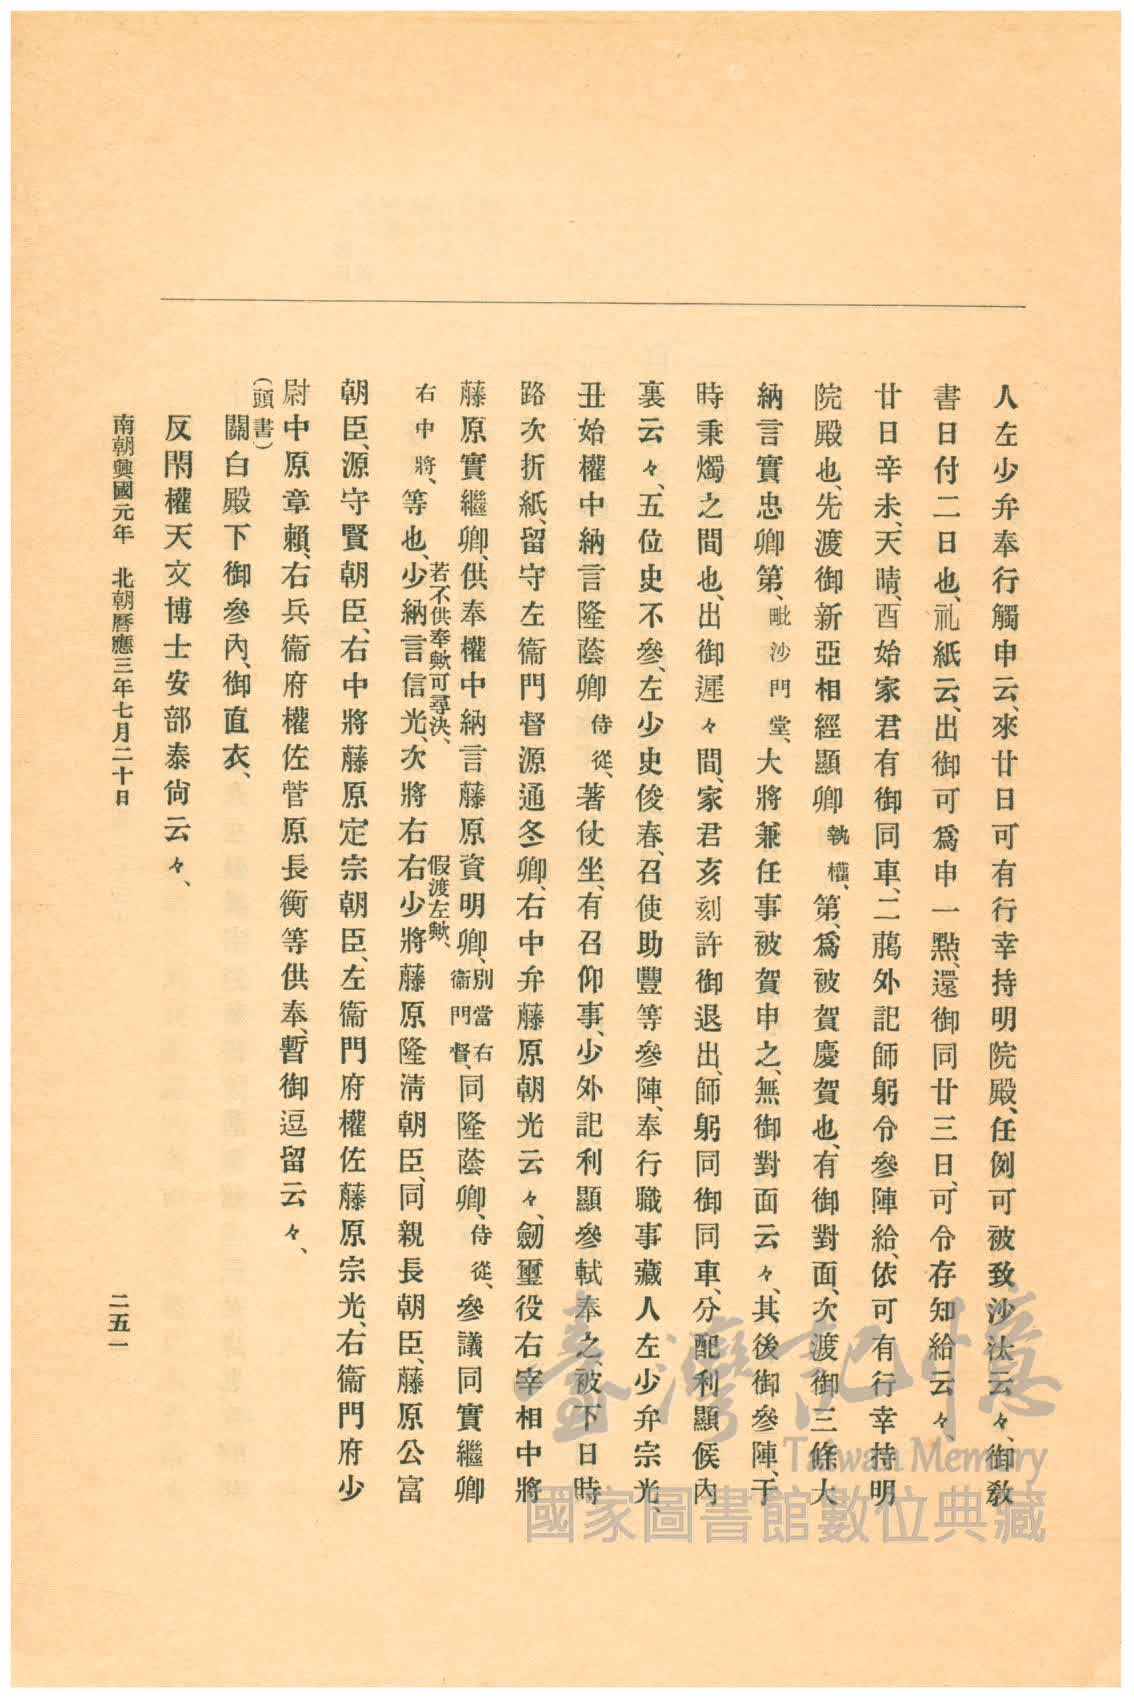 人左少弁奉行觸申云、來廿日可有行幸持明院殿、任例可被致沙汰云々、御敎
書日付二日也、礼紙云、出御可爲申一點、還御同廿三日、可令存知給云々、
廿日辛未、天晴、酉始家君有御同車、二﨟外記師躬令參陣給、依可有行幸持明
院殿也、先渡御新亞相經顯卿執權、第、爲被賀慶賀也、有御對面、次渡御三條大
納言實忠卿第、毗沙門堂、大將兼任事被賀申之、無御對面云々、其後御參陣、于
時秉燭之間也、出御遲々間、家君亥刻許御退出、師躬同御同車、分配利顯候內
裏云々、五位史不參、左少史俊春、召使助豐等參陣、奉行職事藏人左少弁宗光、
丑始權中納言隆蔭卿侍從、著仗坐、有召仰事、少外記利顯參軾奉之、被下日時
路次折紙、留守左衞門督源通冬卿、右中弁藤原朝光云々、劒璽役右宰相中將
藤原實繼卿、供奉權中納言藤原資明卿、別當右衞門督、同隆蔭卿、侍從、參議同實繼卿
若不供奉歟可尋決、
假渡左歟、
右中將、等也、少納言信光、次將右右少將藤原隆淸朝臣、同親長朝臣、藤原公富
朝臣、源守賢朝臣、右中將藤原定宗朝臣、左衞門府權佐藤原宗光、右衞門府少
尉中原章賴、右兵衞府權佐菅原長衡等供奉、暫御逗留云々、
(頭書)
關白殿下御參內、御直衣、
反閇權天文博士安部泰尙云々、
南朝興國元年 北朝曆應三年七月二十日
二五一
臺灣記憶
Taiwan Memory
國家圖書館數位典藏